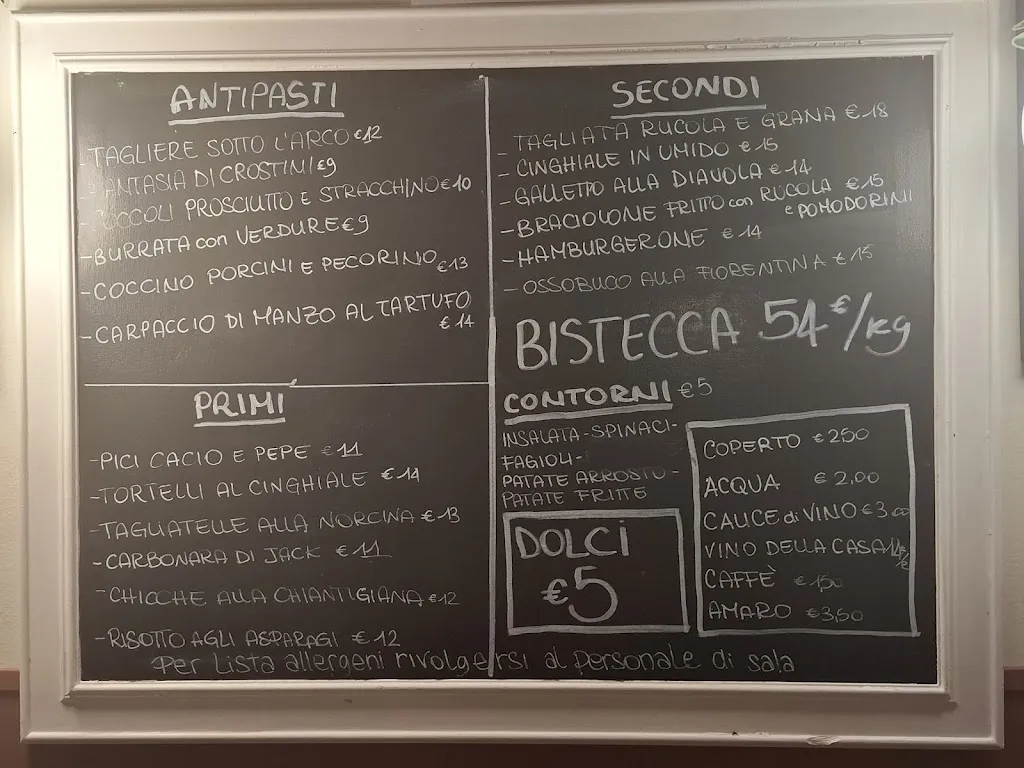 ANTIPASTI
-TAGLIERE SOTTO L'ARCO €12
-FANTASIA DI CROSTINI €9
-COCCOLI PROSCIUTTO E STRACCHINO €10
-BURRATA con VERDURE €9
-COCCINO PORCINI E PECORINO €13
-CARPACCIO DI MANZO AL TARTUFO
€14
PRIMI
-PICI CACIO E PEPE €11
-TORTELLI AL CINGHIALE €14
-TAGLIATELLE ALLA NORCINA €13
-CARBONARA DI JACK €11
-CHICCHE ALLA CHIANTIGIANA €12
-RISOTTO AGLI ASPARAGI €12
SECONDI
-TAGLIATA RUCOLA E GRANA €18
-CINGHIALE IN UMIDO €15
-GALLETTO ALLA DIAVOLA €14
-BRACIOLONE FRITTO con RUCOLA €15
e POMODORINI
-HAMBURGERONE €14
-OSSOBUCO ALLA FIORENTINA €15
BISTECCA 54€/kg
CONTORNI €5
INSALATA-SPINACI-
FAGIOLI-
PATATE ARROSTO-
PATATE FRITTE
DOLCI
€5
COPERTO €250
ACQUA €2,00
CALICE di VINO €3,00
VINO DELLA CASA
CAFFÈ €1,50
AMARO €3,50
Per Lista allergeni rivolgersi al personale di sala